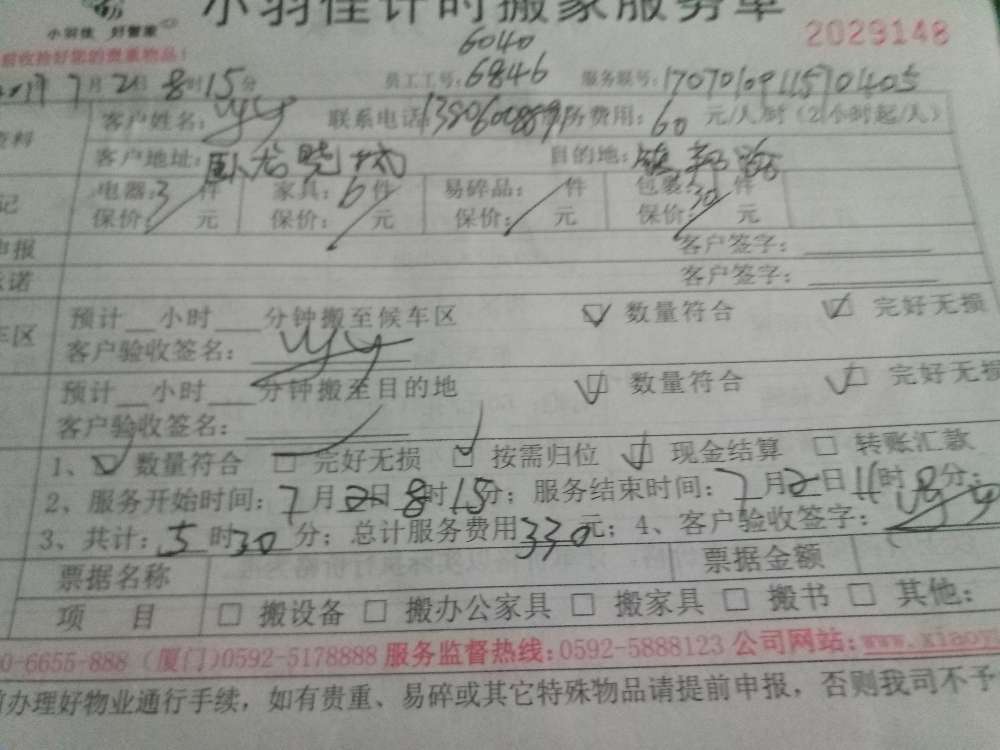 小羽佳计时搬家服务单
小羽佳 好管家
2029148
收拾好您的贵重物品!
6040
7月2日8时15分 员工工号:6846 服务账号:17070109115701405
客户姓名: 联系电话: 费用:60元/人/时(2小时起/人)
客户地址:卧龙晓城 目的地:
电器:3件 家具:6件 易碎品: 件 包装:30件
保价: 元 保价: 元 保价: 元 保价: 元
申报 客户签字:
承诺 客户签字:
预计__小时___分钟搬至候车区 数量符合 完好无损
车区 客户验收签名:
预计__小时___分钟搬至目的地 数量符合 完好无损
客户验收签名:
1、 数量符合 完好无损 按需归位 现金结算 转账汇款
2、服务开始时间:7月2日8时15分;服务结束时间:7月2日11时 分;
3、共计:5时30分;总计服务费用330元;4、客户验收签字:
票据名称 票据金额
项 目 搬设备 搬办公家具 搬家具 搬书 其他:
0-6655-888 (厦门)0592-5178888 服务监督热线:0592-5888123 公司网站:www.xiaoy
办理好物业通行手续,如有贵重、易碎或其它特殊物品请提前申报,否则我司不予